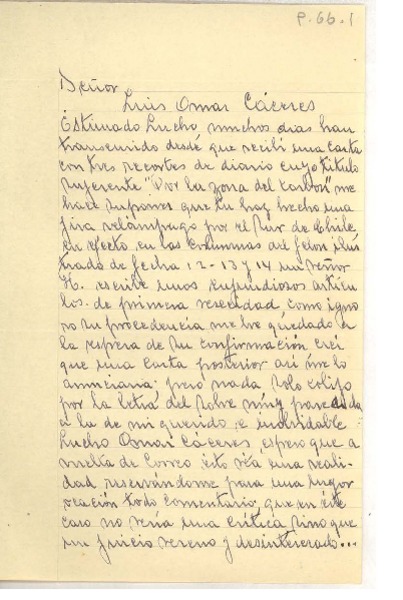 P. 66. 1
Señor
Luis Omar Cáceres
Estimado Lucho, muchos dias han
transcurrido desde que recibí una carta
con tres recortes de diario cuyo título
sugerente "Por la zona del carbón" me
hace suponer que tu hay hecho una
jira relámpago por el Sur de Chile
en efecto, en las columnas del
trado de fecha 12-13 y 14 un señor
H. escribe unos enjundiosos artícu
los de primera necesidad como igno
ro su procedencia me he quedado a
la espera de tu confirmación creí
que una carta posterior así me lo
anunciaria; pero nada solo colijo
por la letra del sobre muy parecida
a la de mi querido e inolvidable
Lucho Omar Cáceres, espero que a
vuelta de correo ésto séa una reali-
dad, reservándome para una
ocación todo comentario, que en éste
caso no sería una crítica sino que
un juicio sereno y desinteresado...